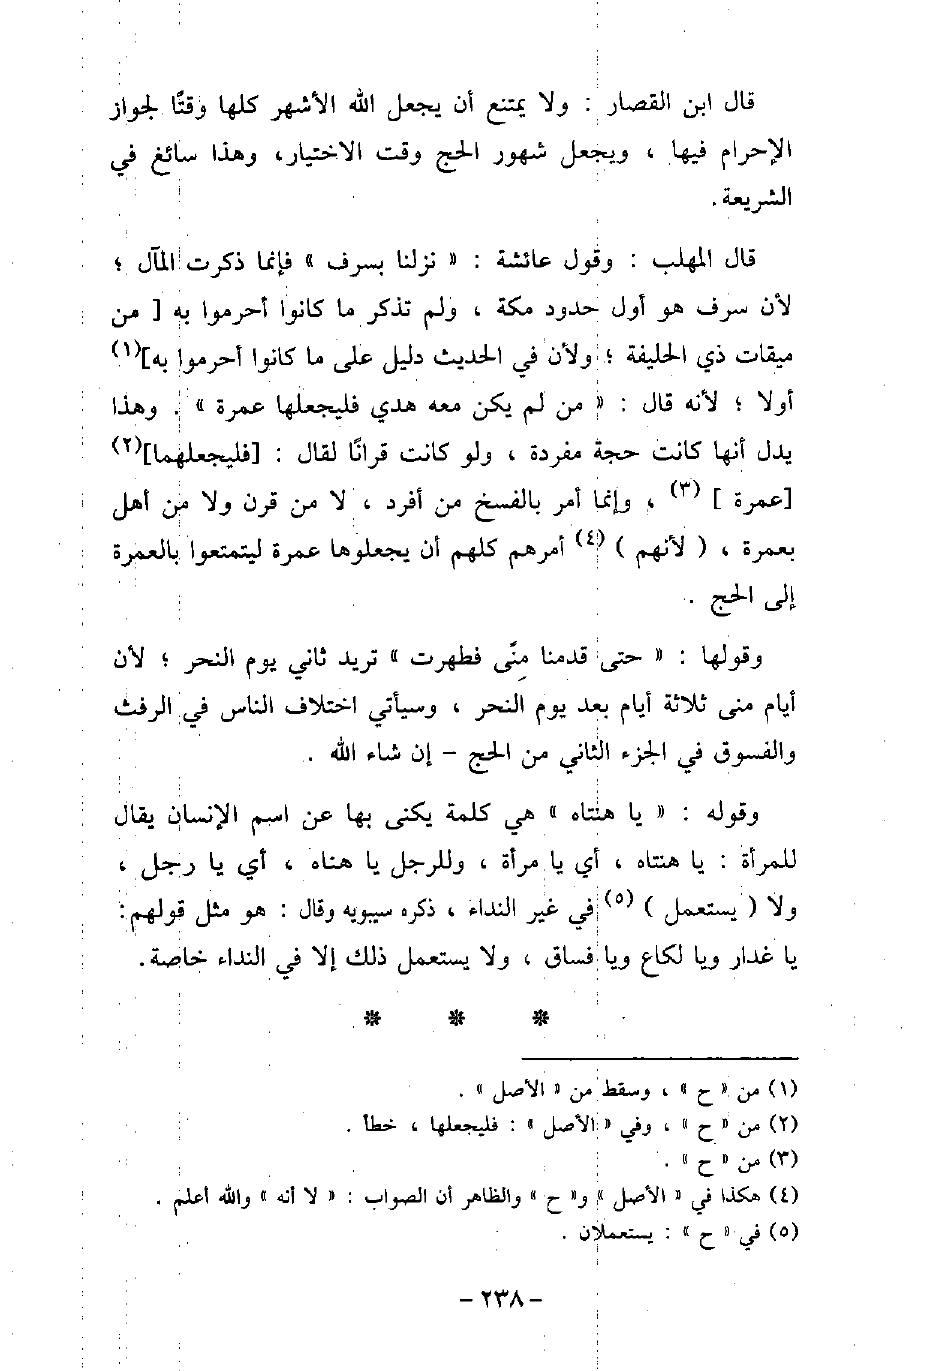 قال ابن القصار : ولا يمتنع أن يجعل الله الأشهر كلها وقتًا لجواز
الإحرام فيها ، ويجعل شهور الحج وقت الاختيار، وهذا سائغ في
الشريعة.
قال المهلب : وقول عائشة : « نزلنا بسرف » فإنما ذكرت المآل ؛
لأن سرف هو أول حدود مكة ، ولم تذكر ما كانوا أحرموا به [ من
ميقات ذي الحليفة ؛ ولأن في الحديث دليل على ما كانوا أحرموا به](١)
أولا ؛ لأنه قال : « من لم يكن معه هدي فليجعلها عمرة » . وهذا
يدل أنها كانت حجة مفردة ، ولو كانت قرانًا لقال : [فليجعلهما](٢)
[عمرة ] (٣) ، وإنما أمر بالفسخ من أفرد ، لا من قرن ولا من أهل
بعمرة ، ( لأنهم ) (٤) أمرهم كلهم أن يجعلوها عمرة ليتمتعوا بالعمرة
إلى الحج .
وقولها : « حتى قدمنا مِنًى فطهرت » تريد ثاني يوم النحر ؛ لأن
أيام منى ثلاثة أيام بعد يوم النحر ، وسيأتي اختلاف الناس في الرفث
والفسوق في الجزء الثاني من الحج – إن شاء الله .
وقوله : « يا هنتاه » هي كلمة يكنى بها عن اسم الإنسان يقال
للمرأة : يا هنتاه ، أي يا مرأة ، وللرجل يا هناه ، أي يا رجل ،
ولا ( يستعمل ) (٥) في غير النداء ، ذكره سيبويه وقال : هو مثل قولهم:
يا غدار ويا لكاع ويا فساق ، ولا يستعمل ذلك إلا في النداء خاصة.
* * *
(١) من « ح » ، وسقط من « الأصل » .
(٢) من « ح » ، وفي « الأصل » : فليجعلها ، خطأ .
(٣) من « ح » .
(٤) هكذا في « الأصل » و« ح » والظاهر أن الصواب : « لا أنه » والله أعلم .
(٥) في « ح » : يستعملان .
– ٢٣٨ –